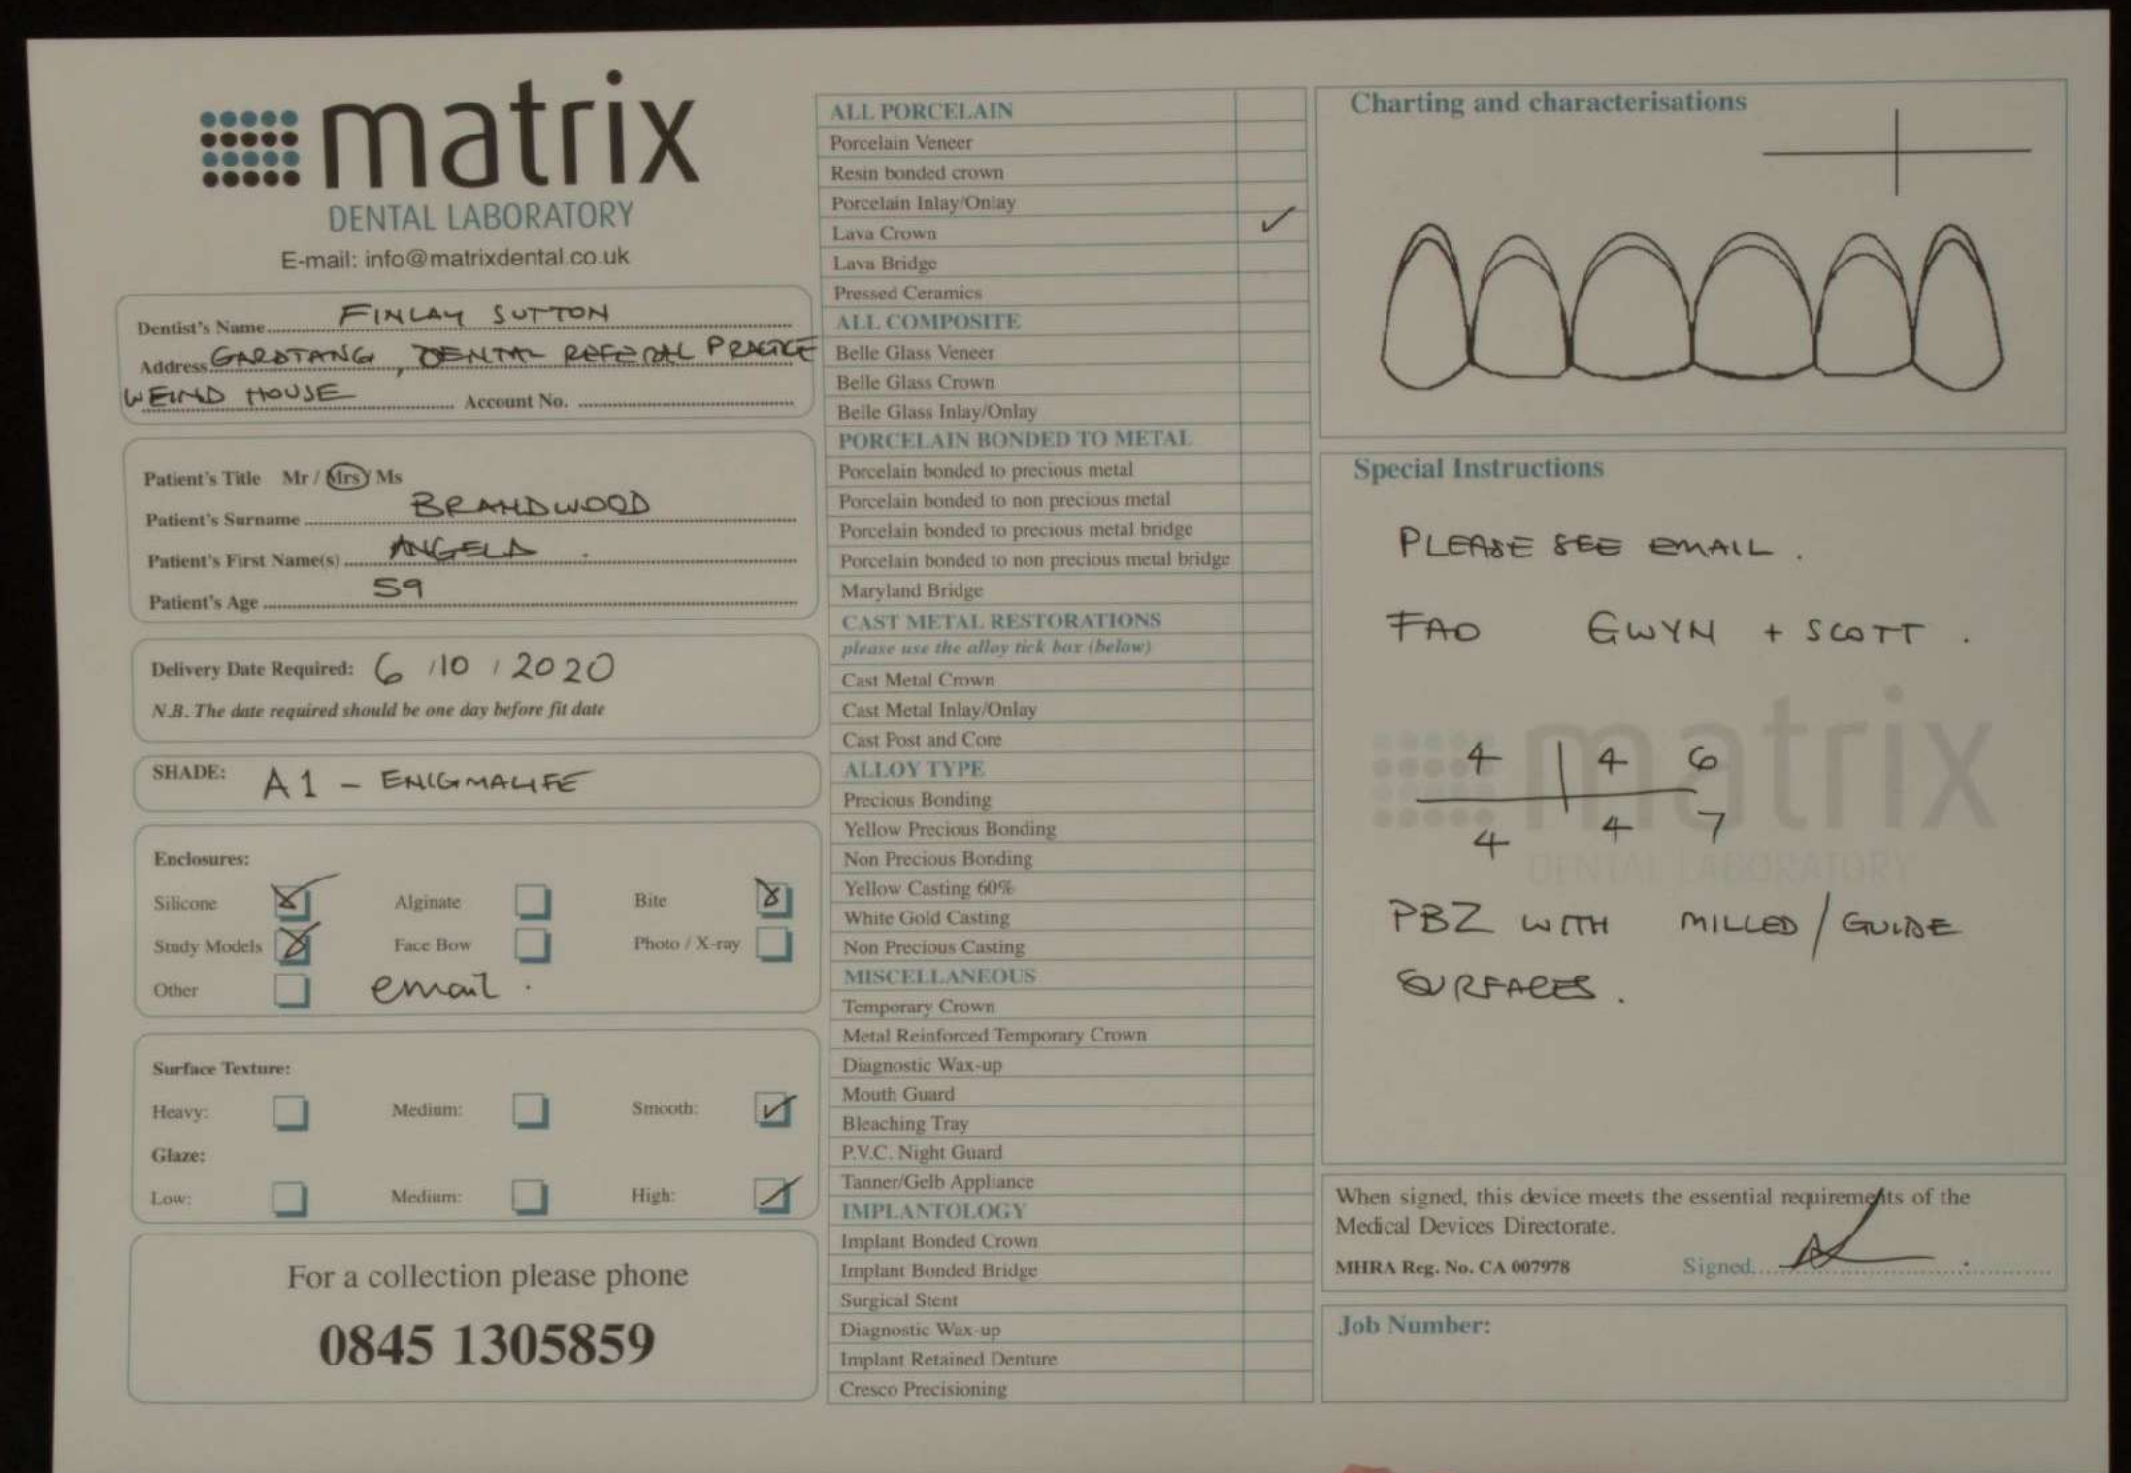 matrix
DENTAL LABORATORY
E-mail: info@matrixdental.co.uk
Dentist's Name FINLAY SUTTON
Address GARSTANG, DENTAL REFERAL PRACTICE
WEIND HOUSE Account No.
Patient's Title Mr / Mrs / Ms
Patient's Surname BRANDWOOD
Patient's First Name(s) ANGELA
Patient's Age 59
Delivery Date Required: 6 / 10 / 2020
N.B. The date required should be one day before fit date
SHADE: A1 - ENIGMALIFE
Enclosures:
Silicone Alginate Bite
Study Models Face Bow Photo / X-ray
Other email.
Surface Texture:
Heavy: Medium: Smooth:
Glaze:
Low: Medium: High:
For a collection please phone
0845 1305859
ALL PORCELAIN
Porcelain Veneer
Resin bonded crown
Porcelain Inlay/Onlay
Lava Crown ✓
Lava Bridge
Pressed Ceramics
ALL COMPOSITE
Belle Glass Veneer
Belle Glass Crown
Belle Glass Inlay/Onlay
PORCELAIN BONDED TO METAL
Porcelain bonded to precious metal
Porcelain bonded to non precious metal
Porcelain bonded to precious metal bridge
Porcelain bonded to non precious metal bridge
Maryland Bridge
CAST METAL RESTORATIONS
please use the alloy tick box (below)
Cast Metal Crown
Cast Metal Inlay/Onlay
Cast Post and Core
ALLOY TYPE
Precious Bonding
Yellow Precious Bonding
Non Precious Bonding
Yellow Casting 60%
White Gold Casting
Non Precious Casting
MISCELLANEOUS
Temporary Crown
Metal Reinforced Temporary Crown
Diagnostic Wax-up
Mouth Guard
Bleaching Tray
P.V.C. Night Guard
Tanner/Gelb Appliance
IMPLANTOLOGY
Implant Bonded Crown
Implant Bonded Bridge
Surgical Stent
Diagnostic Wax-up
Implant Retained Denture
Cresco Precisioning
Charting and characterisations
Special Instructions
PLEASE SEE EMAIL.
FAO GWYN + SCOTT.
4 | 4 6
4 4 7
matrix
DENTAL LABORATORY
PBZ WITH MILLED / GUIDE
SURFACES.
When signed, this device meets the essential requirements of the
Medical Devices Directorate.
MHRA Reg. No. CA 007978 Signed
Job Number: